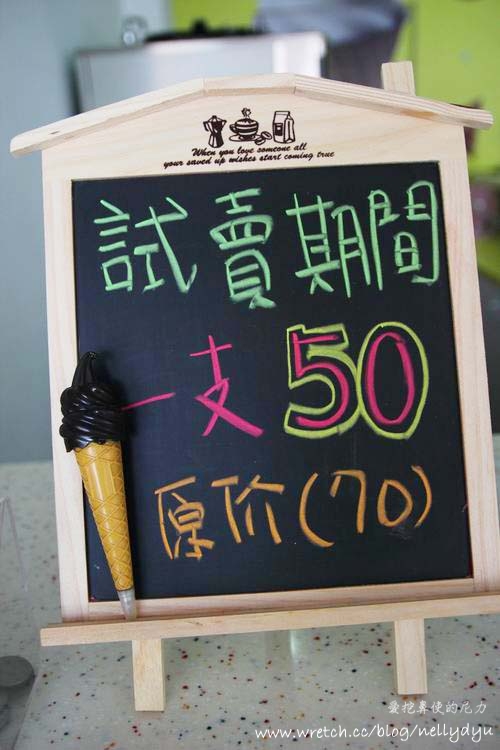 When you love someone all
your saved up wishes start coming true
試賣期間
一支 50
原价(70)
愛挖鼻使的尼力
www.wretch.cc/blog/nellydyu